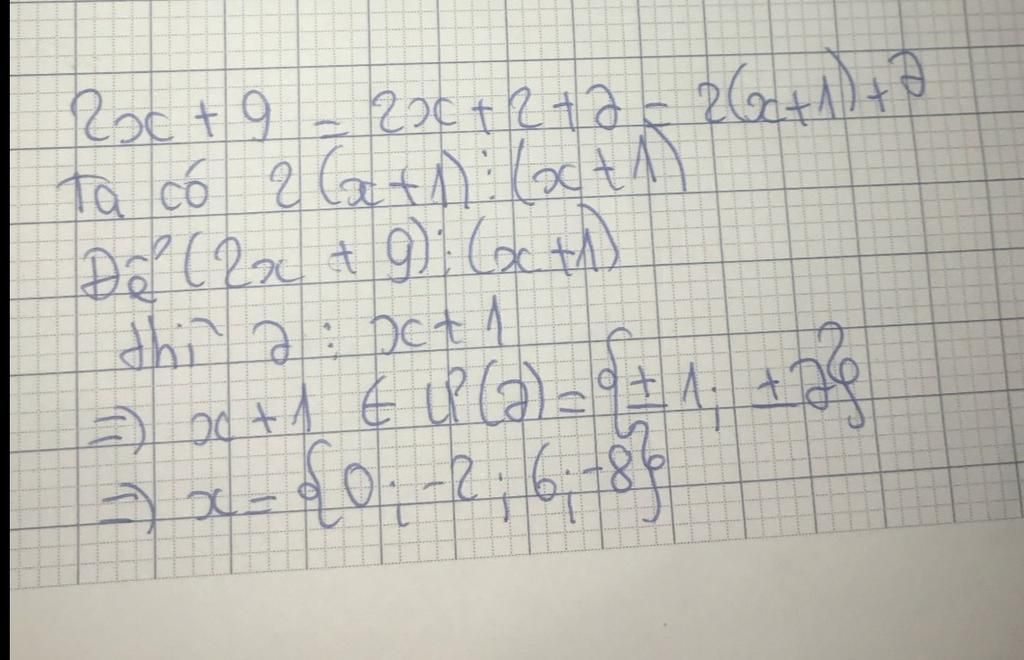 2x + 9 = 2x + 2 + 7 = 2(x+1) + 7
Ta có 2(x+1) ⋮ (x+1)
Để (2x + 9) ⋮ (x+1)
thì 7 ⋮ x+1
=> x+1 ∈ Ư(7) = {±1; ±7}
=> x = {0; -2; 6; -8}